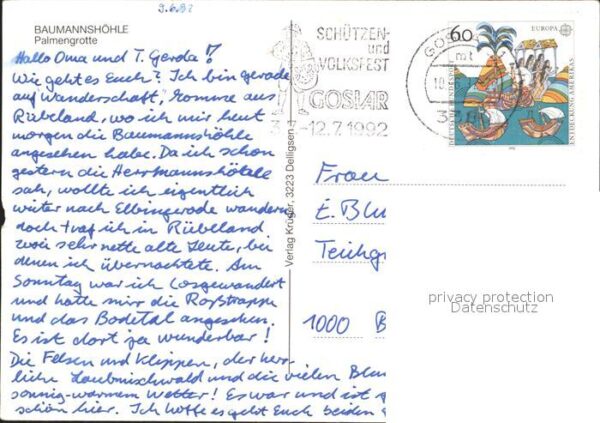 9.6.92
BAUMANNSHÖHLE
Palmengrotte
Hallo Oma und T. Gerda!
Wie geht es Euch? Ich bin gerade
auf "Wanderschaft", komme aus
Rübeland, wo ich mir heut
morgen die Baumannshöhle
angesehen habe. Da ich schon
gestern die Herrmannshöhle
sah, wollte ich eigentlich
weiter nach Elbingerode wandern
doch traf ich in Rübeland
zwei sehr nette alte Leute, bei
denen ich übernachtete. Am
Sonntag war ich losgewandert
und hatte mir die Roßtrappe
und das Bodetal angesehen.
Es ist dort ja wunderbar!
Die Felsen und Klippen, der herr-
liche Laubmischwald und die vielen Blum
sonnig-warmem Wetter! Es war und ist
schön hier. Ich hoffe es geht Euch beiden
Verlag Krüger, 3223 Delligsen
SCHÜTZEN-
und
VOLKSFEST
GOSLAR
-12.7.1992
GOS
mt
18.
60
EUROPA
DEUTSCHE BUNDESPOST
ENTDECKUNG AMERIKAS
1992
Frau
E. Blu
Teichg
1000 B
privacy protection
Datenschutz